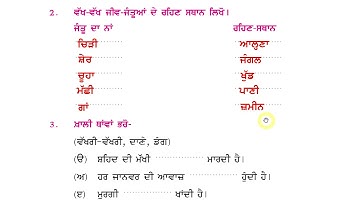 2. ਵੱਖ-ਵੱਖ ਜੀਵ-ਜੰਤੂਆਂ ਦੇ ਰਹਿਣ ਸਥਾਨ ਲਿਖੋ।
ਜੰਤੂ ਦਾ ਨਾਂ ਰਹਿਣ-ਸਥਾਨ
ਚਿੜੀ ਆਲ੍ਹਣਾ
ਸ਼ੇਰ ਜੰਗਲ
ਚੂਹਾ ਖੁੱਡ
ਮੱਛੀ ਪਾਣੀ
ਗਾਂ ਜ਼ਮੀਨ
3. ਖ਼ਾਲੀ ਥਾਂਵਾਂ ਭਰੋ-
(ਵੱਖਰੀ-ਵੱਖਰੀ, ਦਾਣੇ, ਡੰਗ)
(ੳ) ਸ਼ਹਿਦ ਦੀ ਮੱਖੀ ............ ਮਾਰਦੀ ਹੈ।
(ਅ) ਹਰ ਜਾਨਵਰ ਦੀ ਆਵਾਜ਼ ............ ਹੁੰਦੀ ਹੈ।
(ੲ) ਮੁਰਗੀ ............ ਖਾਂਦੀ ਹੈ।